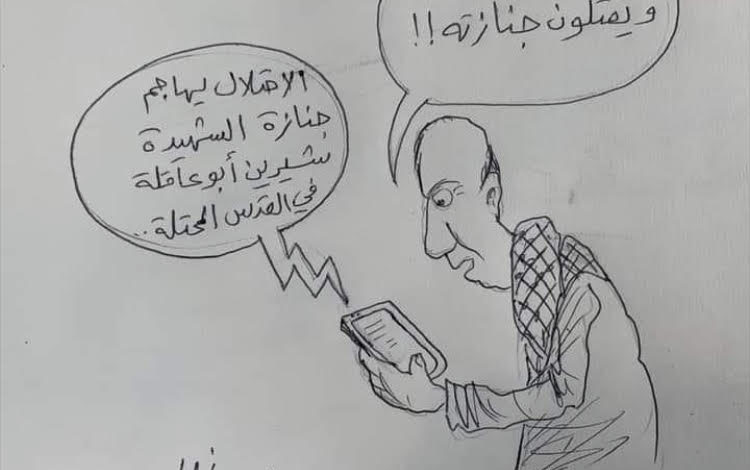 ويقتلون جنازته!!
الاحتلال يهاجم
جنازة الشهيدة
شيرين أبو عاقلة
في القدس المحتلة..